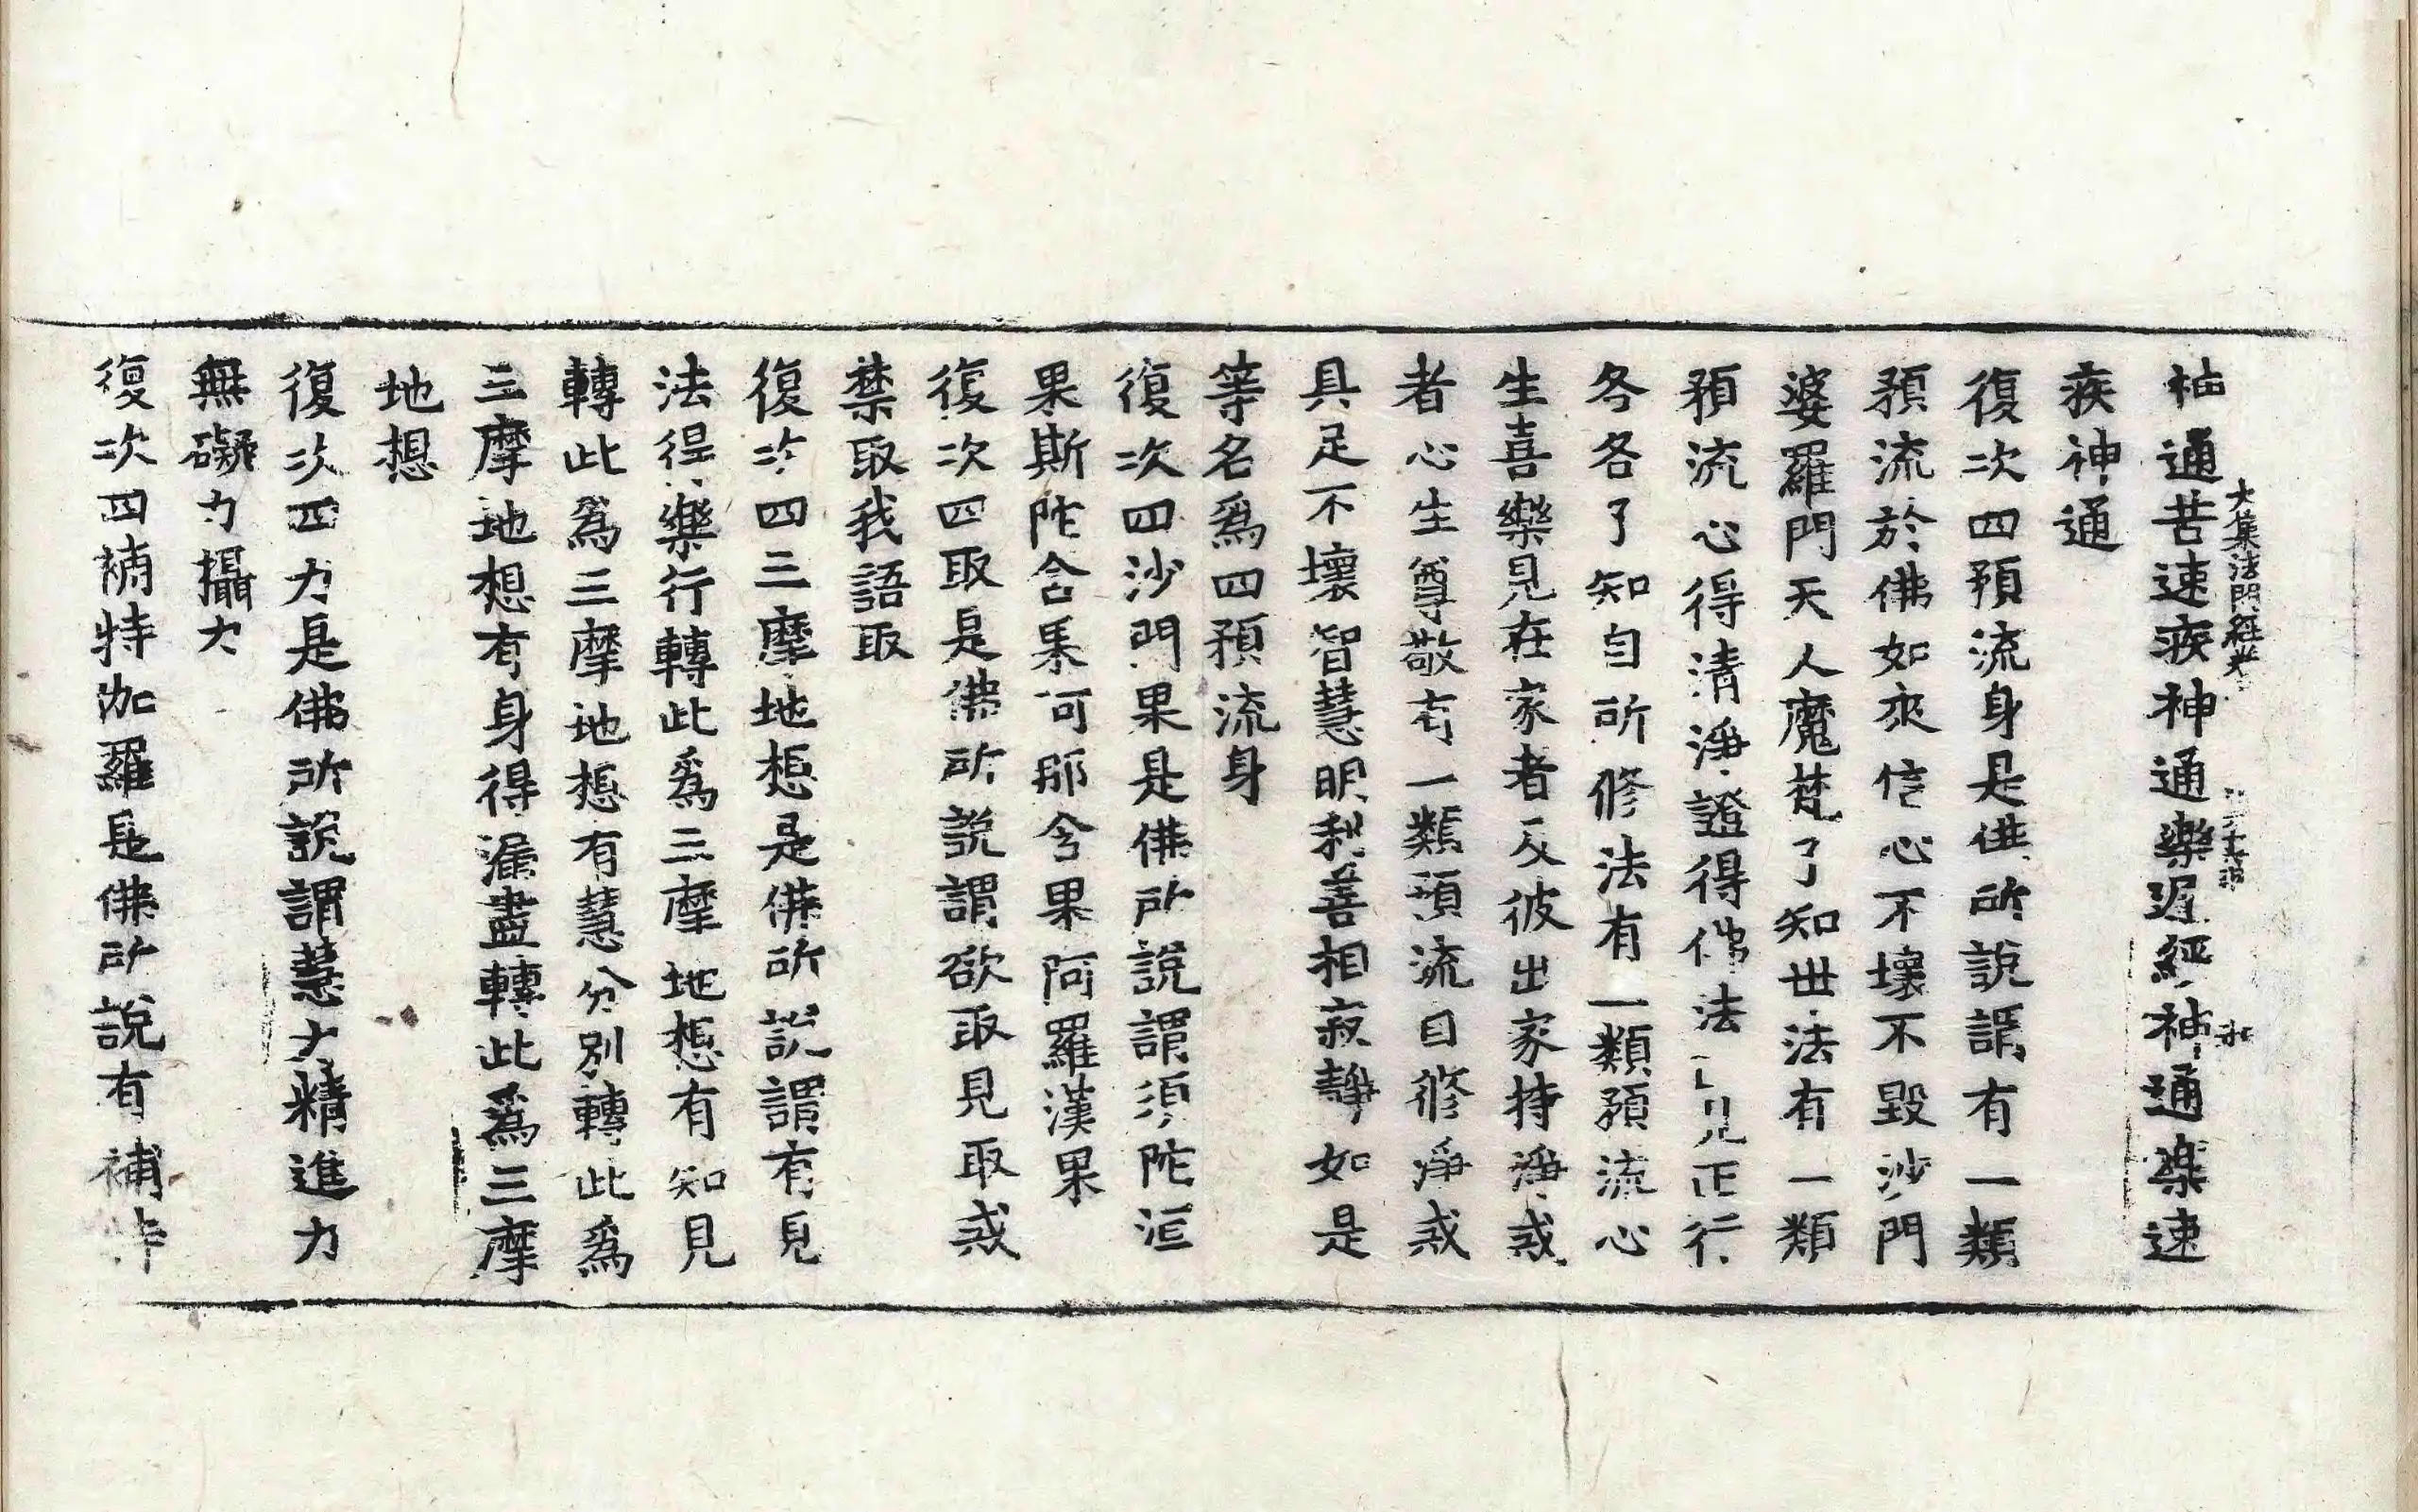 大集法門經卷
神通苦速疾神通樂遲經神通樂速
疾神通
復次四預流身是佛所說謂有一類
預流於佛如來信心不壞不毀沙門
婆羅門天人魔梵了知世法有一類
預流心得清淨證得佛法正見正行
各各了知自所修法有一類預流心
生喜樂見在家者及彼出家持淨戒
者心生尊敬有一類預流自修淨戒
具足不壞智慧明利善相寂靜如是
等名爲四預流身
復次四沙門果是佛所說謂須陀洹
果斯陀含果阿那含果阿羅漢果
復次四取是佛所說謂欲取見取戒
禁取我語取
復次四三摩地想是佛所說謂有見
法得樂行轉此爲三摩地想有知見
轉此爲三摩地想有慧分別轉此爲
三摩地想有身得漏盡轉此爲三摩
地想
復次四力是佛所說謂慧力精進力
無礙力攝力
復次四補特伽羅是佛所說有補特